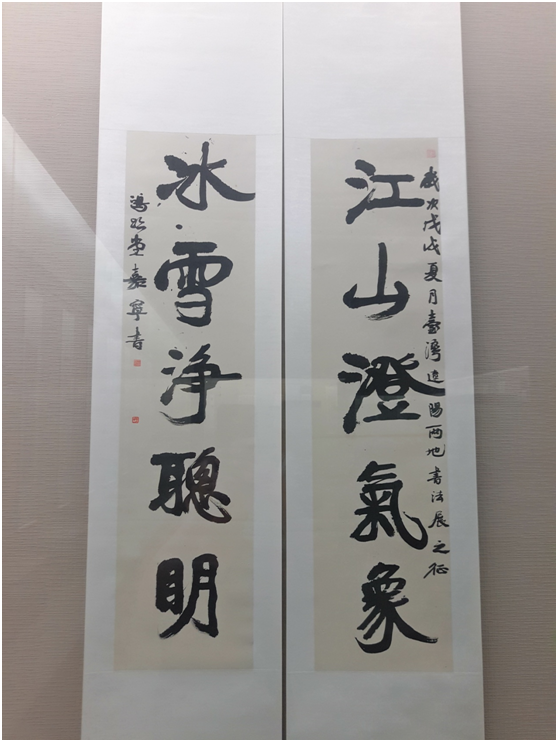 江山澄氣象
歲次戊戌夏月臺灣遼陽兩地書法展之征
冰雪淨聰明
鴻跡堂嘉寧書